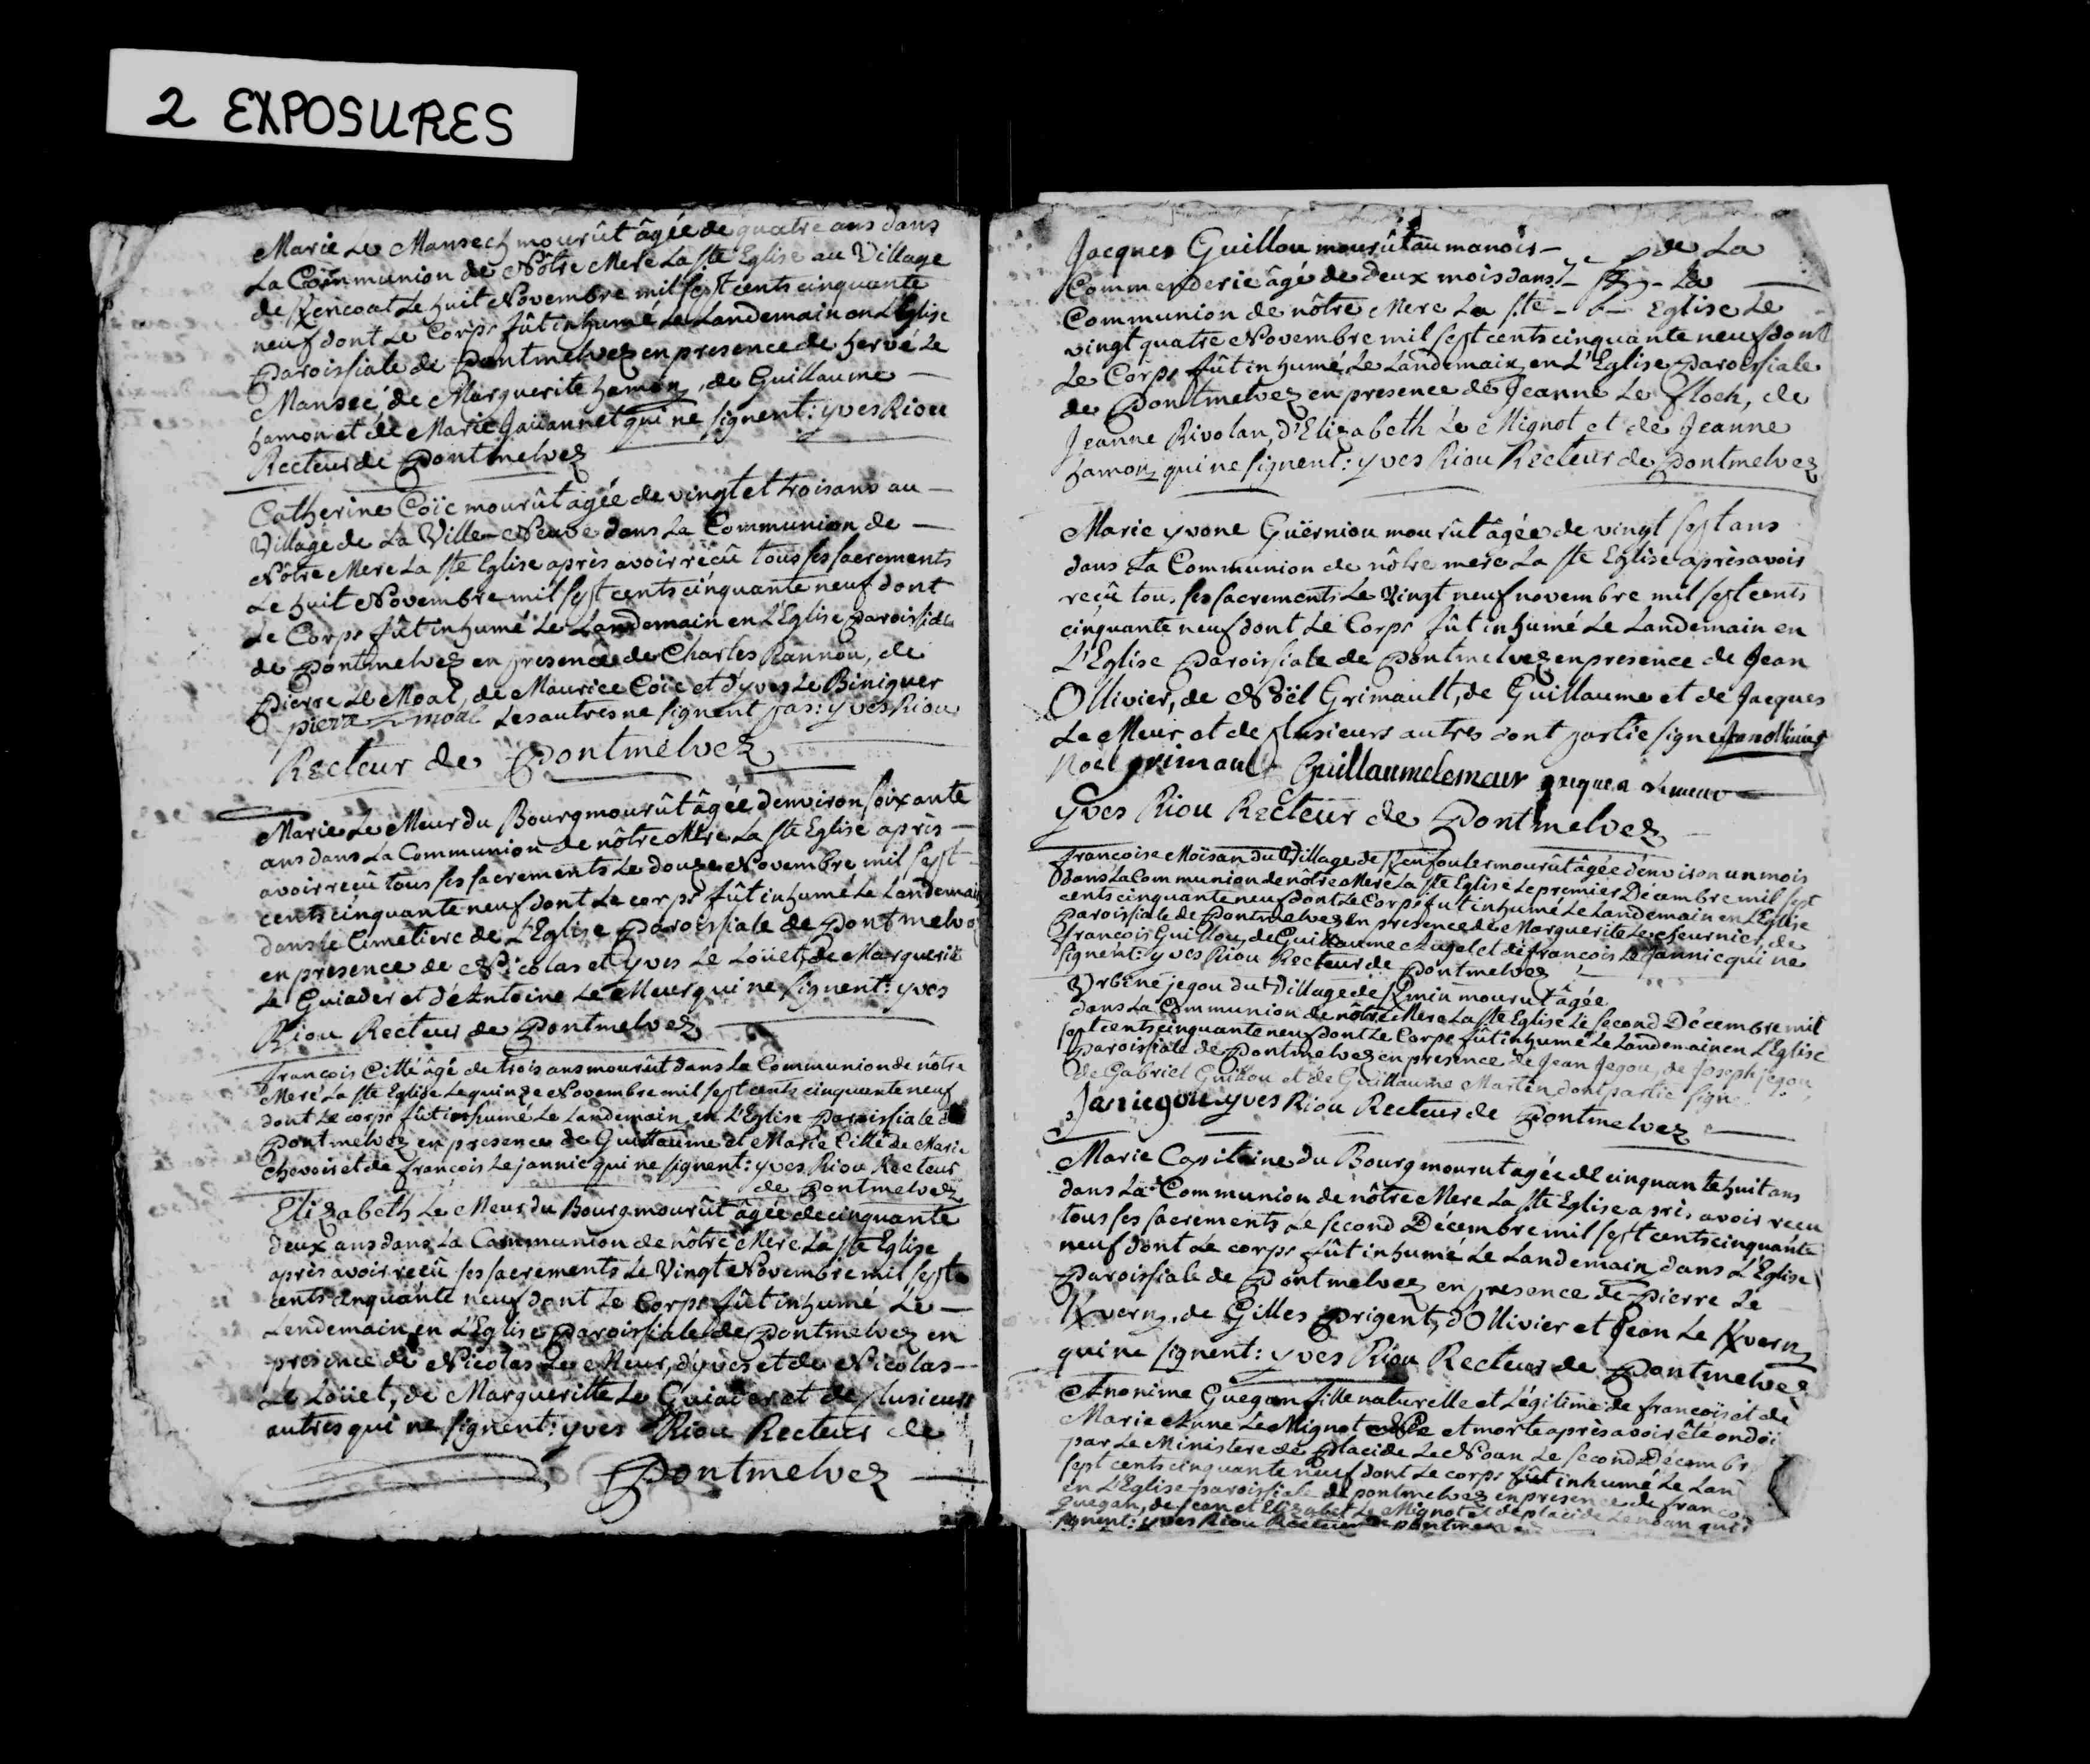 2 EXPOSURES
Marie Le Mansech mourût âgée de quatre ans dans
La Communion de Nôtre Mere La Ste Eglise au Village
de Kencoat Le huit Novembre mil sept cents cinquante
neuf dont Le Corps fût inhumé Le Landemain en L'Eglise
Paroissiale de Pontmelvez en presence de hervé Le
Manseé, de Marguerite hamon, de Guillaume
hamon et de Marie Jaüannet qui ne signent: yves Riou
Recteur de Pontmelvez
Catherine Coïc mourût agée de vingt et trois ans au
Village de La Ville-Neuve dans La Communion de
Nôtre Mere La Ste Eglise après avoir reçû tous ses sacrements
Le huit Novembre mil sept cents cinquante neuf dont
Le Corps fût inhumé Le Landemain en L'Eglise Paroissiale
de Pontmelvez en presence de Charles Rannou, de
Pierre Le Moal, de Maurice Coïc et d'yves Le Biniguer
pierre moal Les autres ne signent pas: yves Riou
Recteur de Pontmelvez
Marie Le Meur du Bourg mourût âgée d'environ soixante
ans dans La Communion de nôtre Mere La Ste Eglise après
avoir reçû tous ses sacrements Le douze Novembre mil sept
cents cinquante neuf dont Le corps fût inhumé Le Landemain
dans le Cimetiere de L'Eglise Paroissiale de Pontmelvez
en presence de Nicolas et yves Le Loüet, de Marguerite
Le Guiader et d'Antoine Le Meur qui ne signent: yves
Riou Recteur de Pontmelvez
francois Citté âgé de trois ans mourût dans La Communion de nôtre
Mere La Ste Eglise Le quinze Novembre mil sept cents cinquante neuf
dont Le corps fût inhumé Le Landemain en L'Eglise Paroissiale de
Pontmelvez en presence de Guillaume et Marie Citté de Marie
chevoir et de francois Le jannic qui ne signent: yves Riou Recteur
de Pontmelvez
Elizabeth Le Meur du Bourg mourût âgée de cinquante
deux ans dans La Communion de nôtre Mere La Ste Eglise
après avoir reçû ses sacrements Le Vingt Novembre mil sept
cents cinquante neuf dont Le Corps fût inhumé Le
Lendemain en L'Eglise Paroissiale de Pontmelvez en
presence de Nicolas Le Meur, d'yves et de Nicolas
Le Loüet, de Margueritte Le Guiader et de plusieurs
autres qui ne signent: yves Riou Recteur de
Pontmelvez
Jacques Guillou mourût au manoir de La
Commenderie âgé de deux mois dans La
Communion de nôtre Mere La Ste Eglise Le
vingt quatre Novembre mil sept cents cinquante neuf dont
Le Corps fût inhumé Le Landemain en L'Eglise Paroissiale
de Pontmelvez en presence de Jeanne Le floch, de
Jeanne Rivolan, d'Elizabeth Le Mignot et de Jeanne
hamon qui ne signent: yves Riou Recteur de Pontmelvez
Marie yvone Guërniou mourût âgée de vingt sept ans
dans La Communion de nôtre mere La Ste Eglise après avoir
reçû tous ses sacrements Le Vingt neuf novembre mil sept cents
cinquante neuf dont Le Corps fût inhumé Le Landemain en
L'Eglise Paroissiale de Pontmelvez en presence de Jean
Ollivier, de Noël Grimault, de Guillaume et de Jacques
Le Meur et de plusieurs autres dont partie signe Jan ollivier
Noel grimault Guillaume Lemeur Lemeur
yves Riou Recteur de Pontmelvez
francoise Moïsan du Village de mourût âgée d'environ un mois
dans La Communion de nôtre Mere La Ste Eglise Le premier Décembre mil sept
cents cinquante neuf dont Le Corps fut inhumé Le Landemain en L'Eglise
Paroissiale de Pontmelvez en presence de Marguerite Le, de
francois Guillou, de Guillaume et de francois Le jannic qui ne
signent: yves Riou Recteur de Pontmelvez
Urbene jegou du Village de Kmin mourut âgée
dans La Communion de nôtre Mere La Ste Eglise Le second Décembre mil
sept cents cinquante neuf dont Le Corps fût inhumé Le Landemain en L'Eglise
Paroissiale de Pontmelvez en presence de Jean Jegou, de Joseph jegou
de Gabriel Guillou et de Guillaume Martin dont partie signe
Jan iegou yves Riou Recteur de Pontmelvez
Marie Capitaine du Bourg mourut agée de cinquante huit ans
dans La Communion de nôtre Mere La Ste Eglise après avoir reçu
tous ses sacrements Le second Décembre mil sept cents cinquante
neuf dont Le corps fût inhumé Le Landemain dans L'Eglise
Paroissiale de Pontmelvez en presence de Pierre Le
Kvern, de Gilles Prigent, d'Ollivier et Jean Le Kvern
qui ne signent: yves Riou Recteur de Pontmelvez
Anonime Guegan fille naturelle et Légitime de francois et de
Marie Anne Le Mignot née et morte après avoir êté ondoï
par Le Ministere de Placide Le Noan Le second Décembre
sept cents cinquante neuf dont Le corps fût inhumé Le Lan
en L'Eglise paroissiale de pontmelvez en presence de francois
guegan, de Jean et Elizabet Le Mignot et de placide Lenoan qui
signent: yves Riou Recteur de pontmelvez